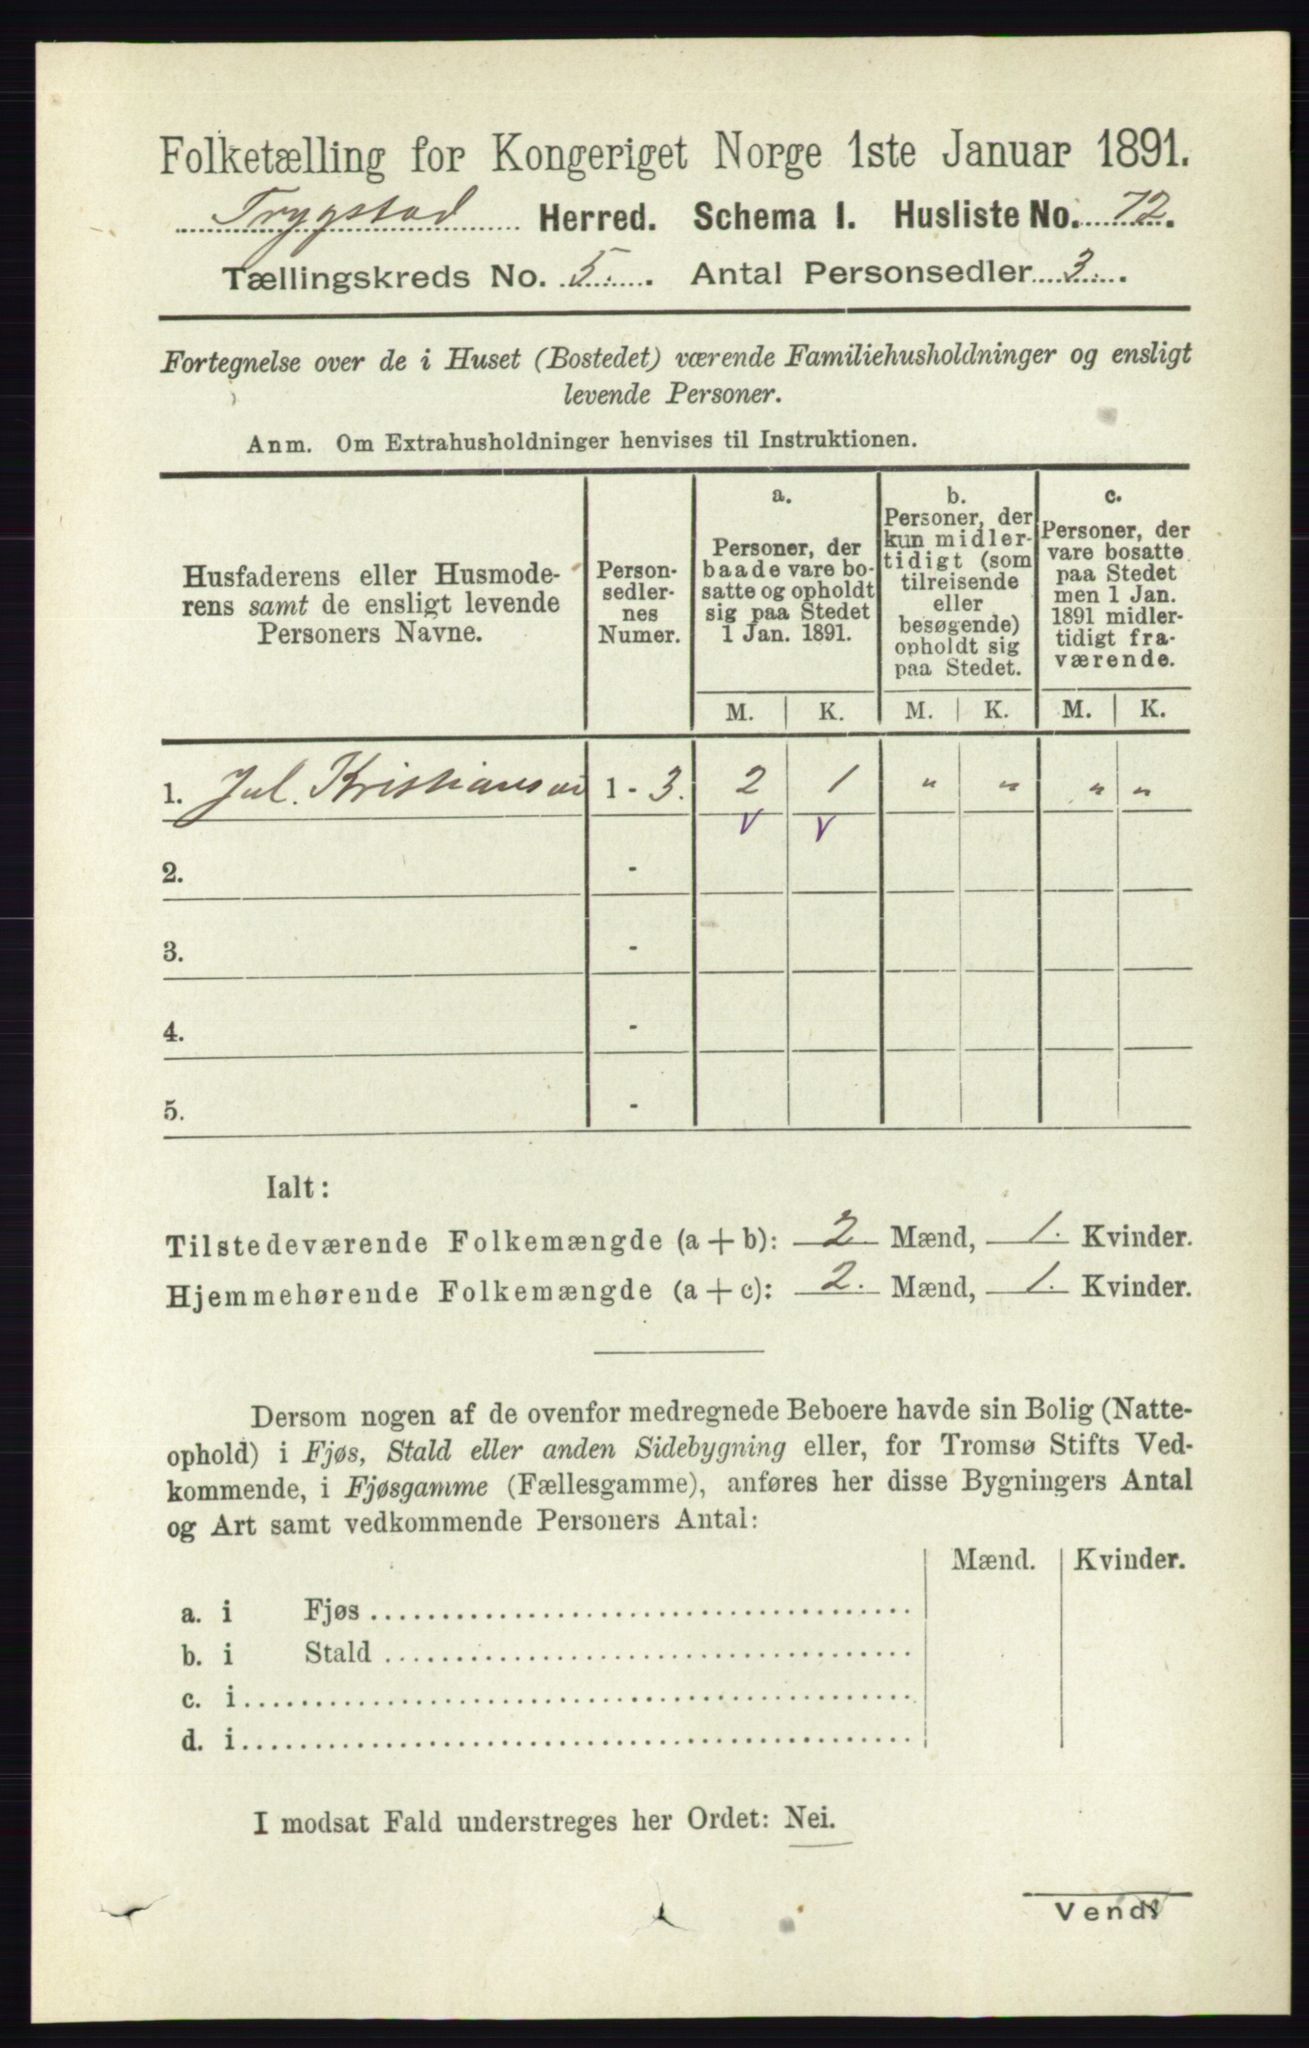 Folketælling for Kongeriget Norge 1ste Januar 1891.
Trygstad Herred. Schema I. Husliste No. 72.
Tællingskreds No. 5. Antal Personsedler 3.
Fortegnelse over de i Huset (Bostedet) værende Familiehusholdninger og ensligt
levende Personer.
Anm. Om Extrahusholdninger henvises til Instruktionen.
Husfaderens eller Husmode-
rens samt de ensligt levende
Personers Navne.
Person-
sedler-
nes
Numer.
a.
Personer, der
baade vare bo-
satte og opholdt
sig paa Stedet
1 Jan. 1891.
b.
Personer, der
kun midler-
tidigt (som
tilreisende
eller
besøgende)
opholdt sig
paa Stedet.
c.
Personer, der
vare bosatte
paa Stedet
men 1 Jan.
1891 midler-
tidigt fra-
værende.
M. K. M. K. M. K.
1. Jul. Kristiansen 1 - 3. 2 1 " " " "
V V
2. -
3. -
4. -
5. -
Ialt:
Tilstedeværende Folkemængde (a + b): 2. Mænd, 1. Kvinder.
Hjemmehørende Folkemængde (a + c): 2. Mænd, 1. Kvinder.
Dersom nogen af de ovenfor medregnede Beboere havde sin Bolig (Natte-
ophold) i Fjøs, Stald eller anden Sidebygning eller, for Tromsø Stifts Ved-
kommende, i Fjøsgamme (Fællesgamme), anføres her disse Bygningers Antal
og Art samt vedkommende Personers Antal:
Mænd. Kvinder.
a. i Fjøs
b. i Stald
c. i
d. i
I modsat Fald understreges her Ordet: Nei.
Vend!